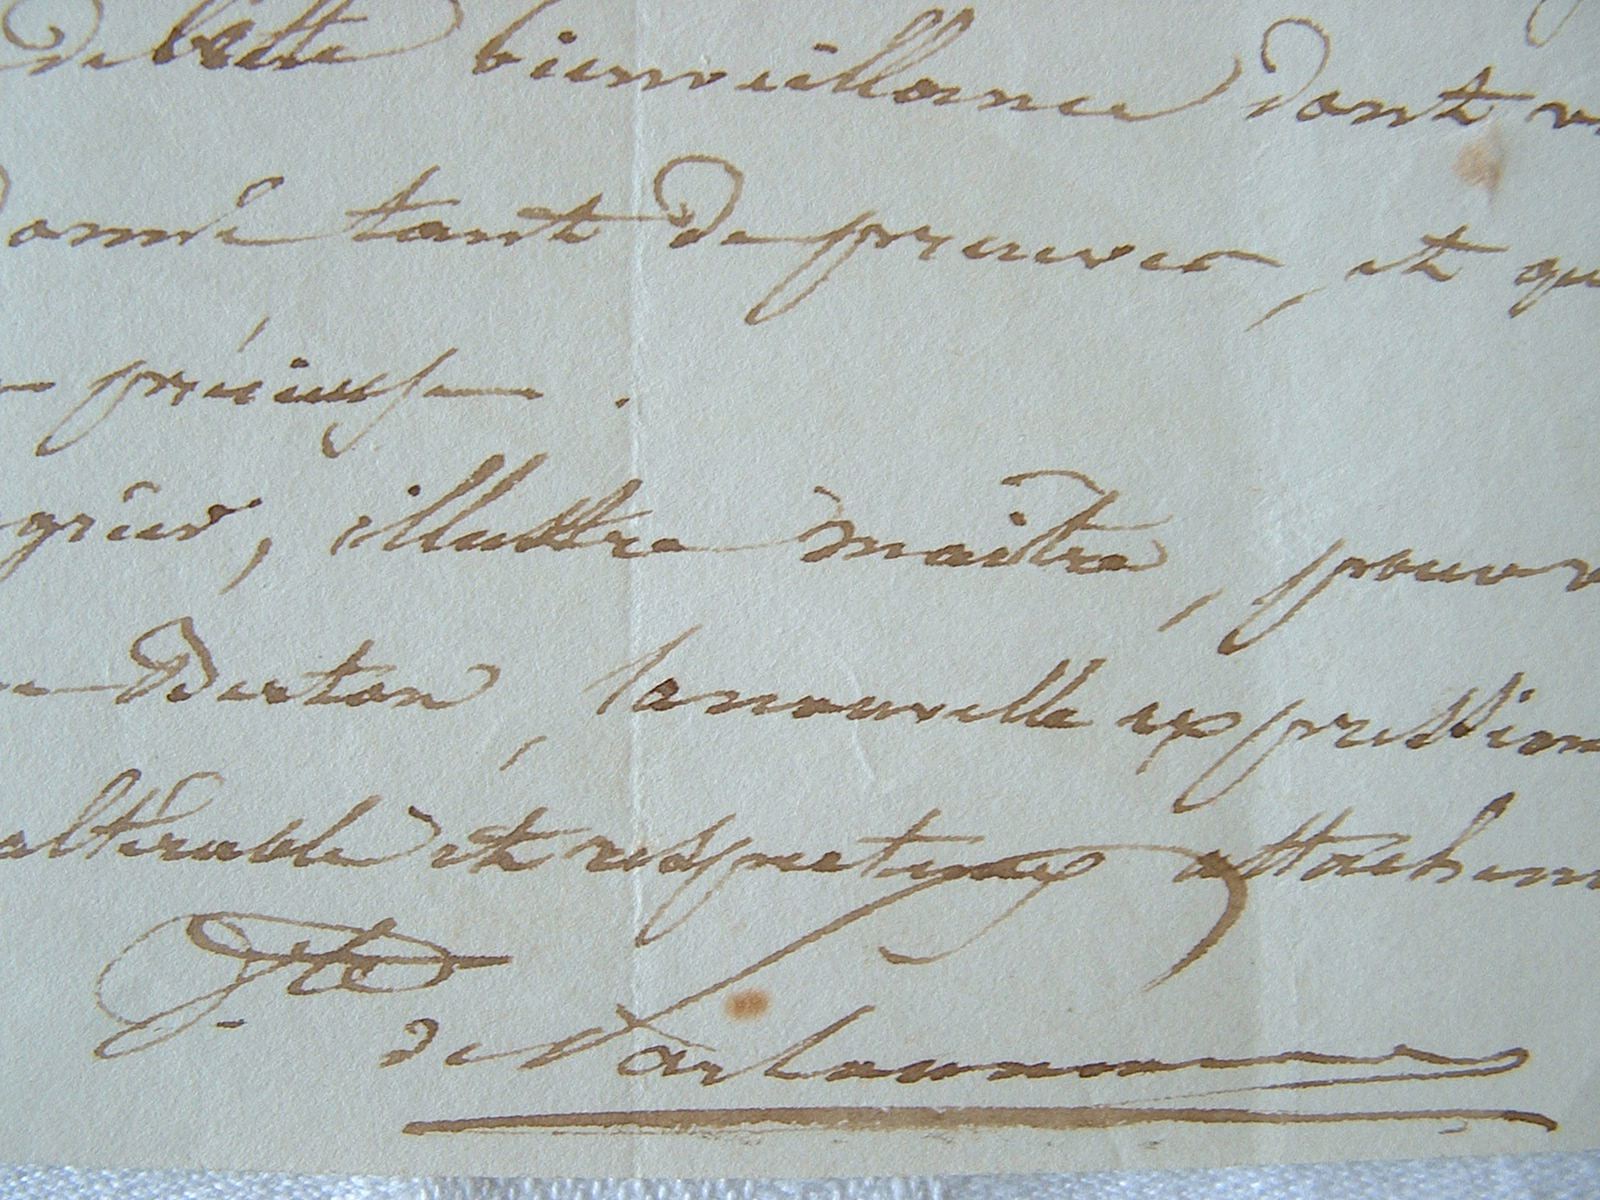 de cette bienveillance dont v
donné tant de preuves, et qu
précieuse.
gréer, illustre maitre, pour v
Berton, la nouvelle expression
altérable et respectueux attachem
Cte
de